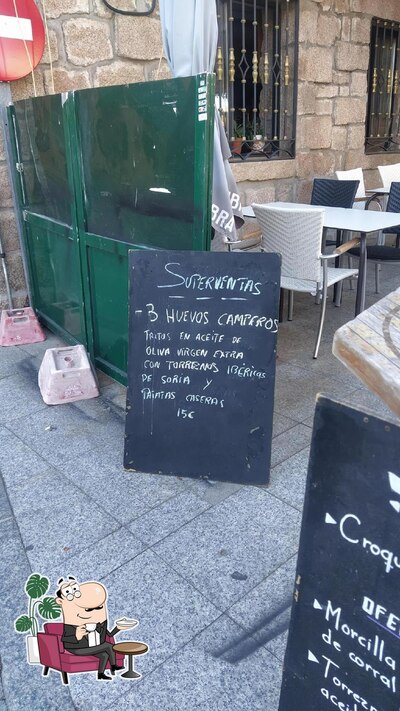 SUPERVENTAS
- 3 HUEVOS CAMPEROS
FRITOS EN ACEITE DE
OLIVA VIRGEN EXTRA
CON TORREZNOS IBÉRICOS
DE SORIA Y
PATATAS CASERAS
15€
Croqu
OFE
Morcilla
de corral
Torrezn
aceit